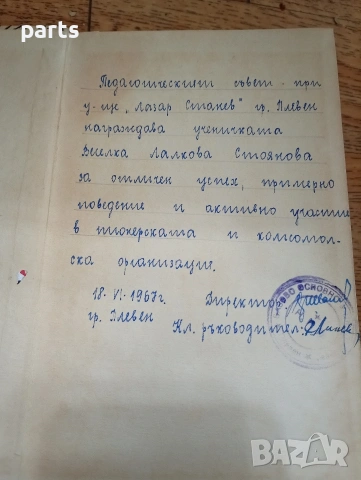 parts
Педагогическият съвет при
у-ще „Лазар Станев" гр. Плевен
награждава ученичката
Веселка Лалкова Стоянова
за отличен успех, примерно
поведение и активно участие
в пионерската и комсомол-
ска организации.
18. VI. 1967 г. Директор:
гр. Плевен Кл. ръководител:
ОСНОВНО
BAZAR.bg